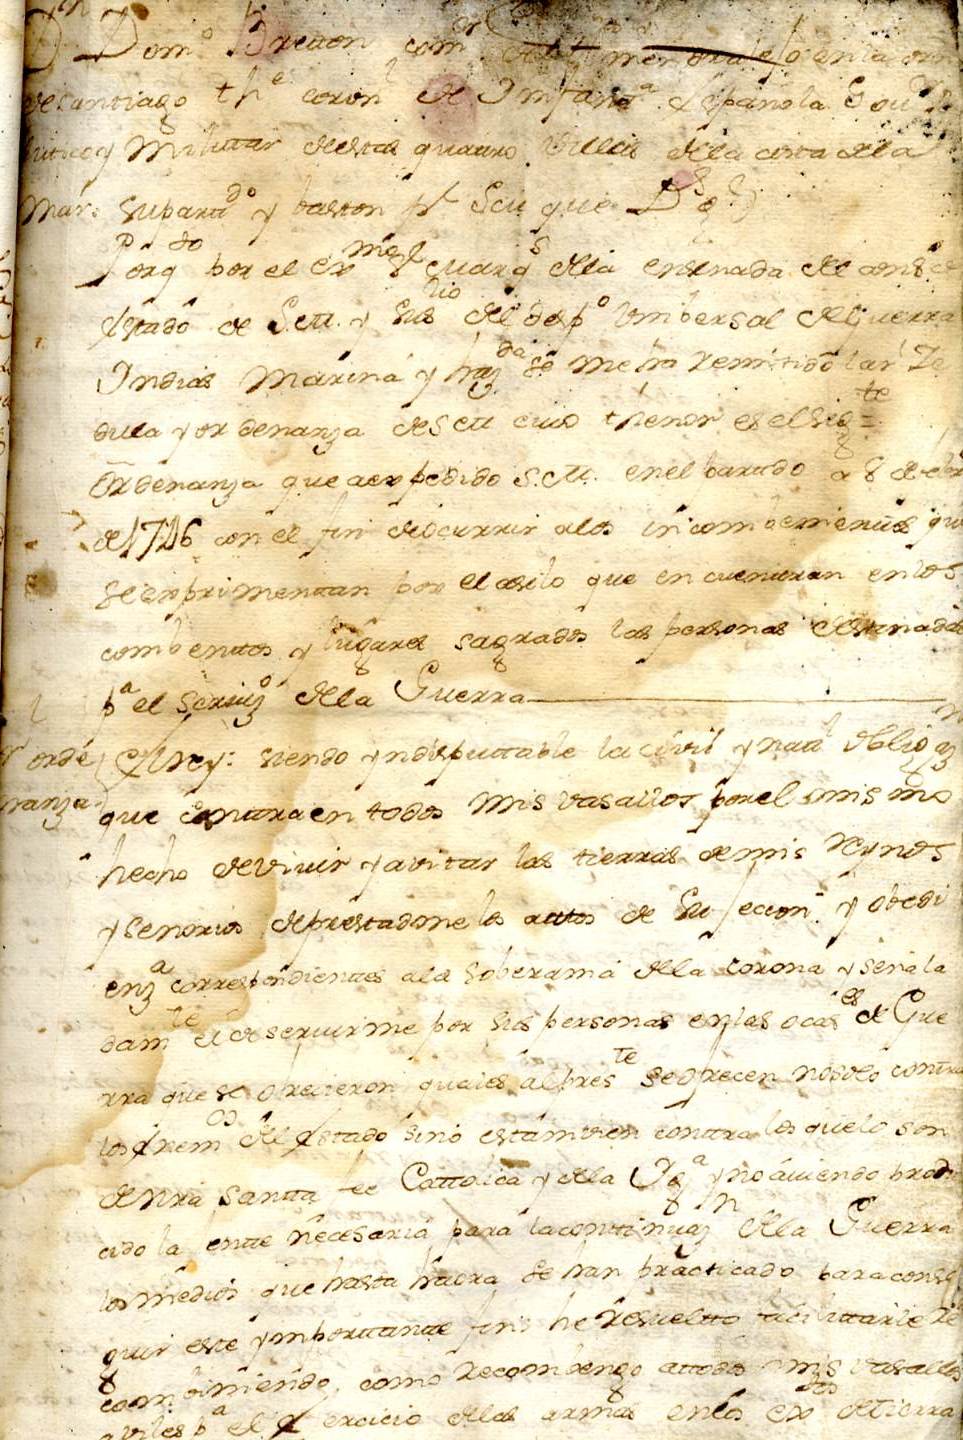 Dn Domo Breton comor de Almendralejo en la orn
de santiago thte coronl de Infanta española Gour
litico y Militar de estas quatro Villas de la costa de la
Mar. su partdo y baston pr S.M. que Ds ge
Porqdo por el exmo sl Marqs de la ensenada del cons de
estado de S.M. y Srio del desp.o Vnibersal de Guerra
Indias Marina y hazda se me ha remitido la rl Ze
dula y ordenanza de S.M. cuio thenor es el sigte =
Ordenanza que a expedido S.M. en el pardo a 8 de febro
de 1746 con el fin de ocurrir a los incombenientes que
se experimentan por el asilo que encuentran en los
combentos y lugares sagrados las personas destinadas
pa el servizo de la Guerra
Rl orde
nanza
El rey: siendo yndisputtable la civil y natl obligazn
que contraen todos mis vasallos por el mismo
hecho de vivir y avitar las tierras de mis Reynos
y señorios de prestadome los actos de sujecion y obedi
enza correspondientes a la soberania de la corona y señala
damte el de servirme por sus personas en las ocases de Gue
rra que se ofrecieron quales al preste se ofrecen no solo contra
los enemos del estado sino estamvien contra los que lo son
de nra santta fee Cattolica y de la Yga y no aviendo produ
cido la entte necesaria para la continuazn de la Guerra
los medios que hasta haora se han practicado para conse
guir este ymporttante fin he resueltto facilitarle re
combiniendo, como recombengo a ttodos mis vasallos
utiles pa el exercicio de las armas en los extos de tierra